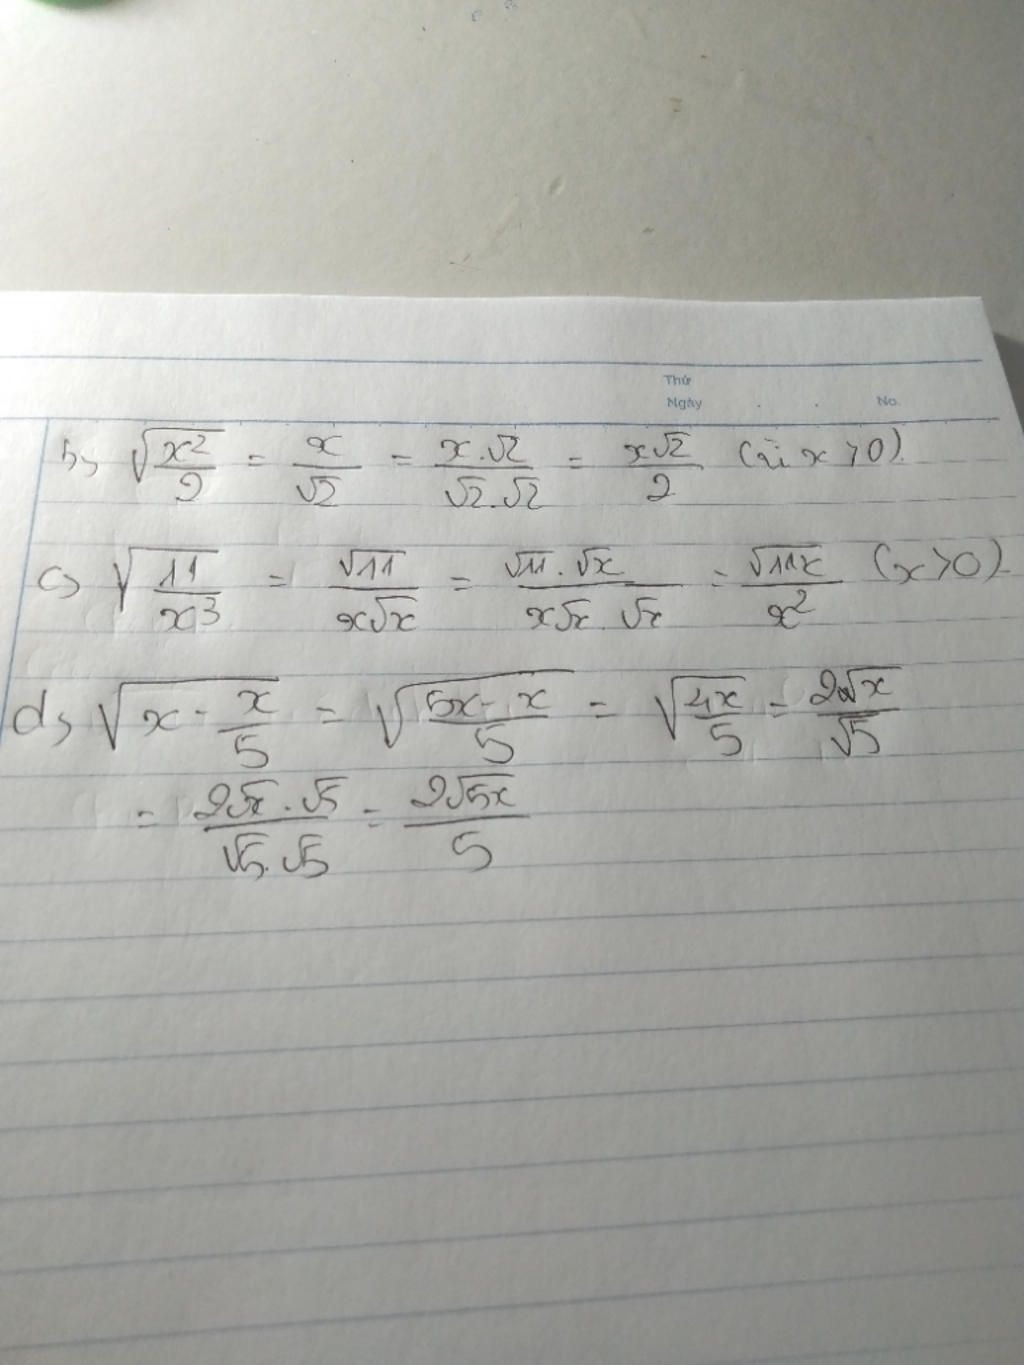 Thứ
Ngày . . No.
b, √(x²/2) = x/√2 = x.√2/√2.√2 = x√2/2 (vì x > 0).
c, √(11/x³) = √11/x√x = √11.√x/x√x.√x = √11x/x² (x > 0).
d, √(x - x/5) = √((5x - x)/5) = √(4x/5) = 2√x/√5
= 2√x.√5/√5.√5 = 2√5x/5